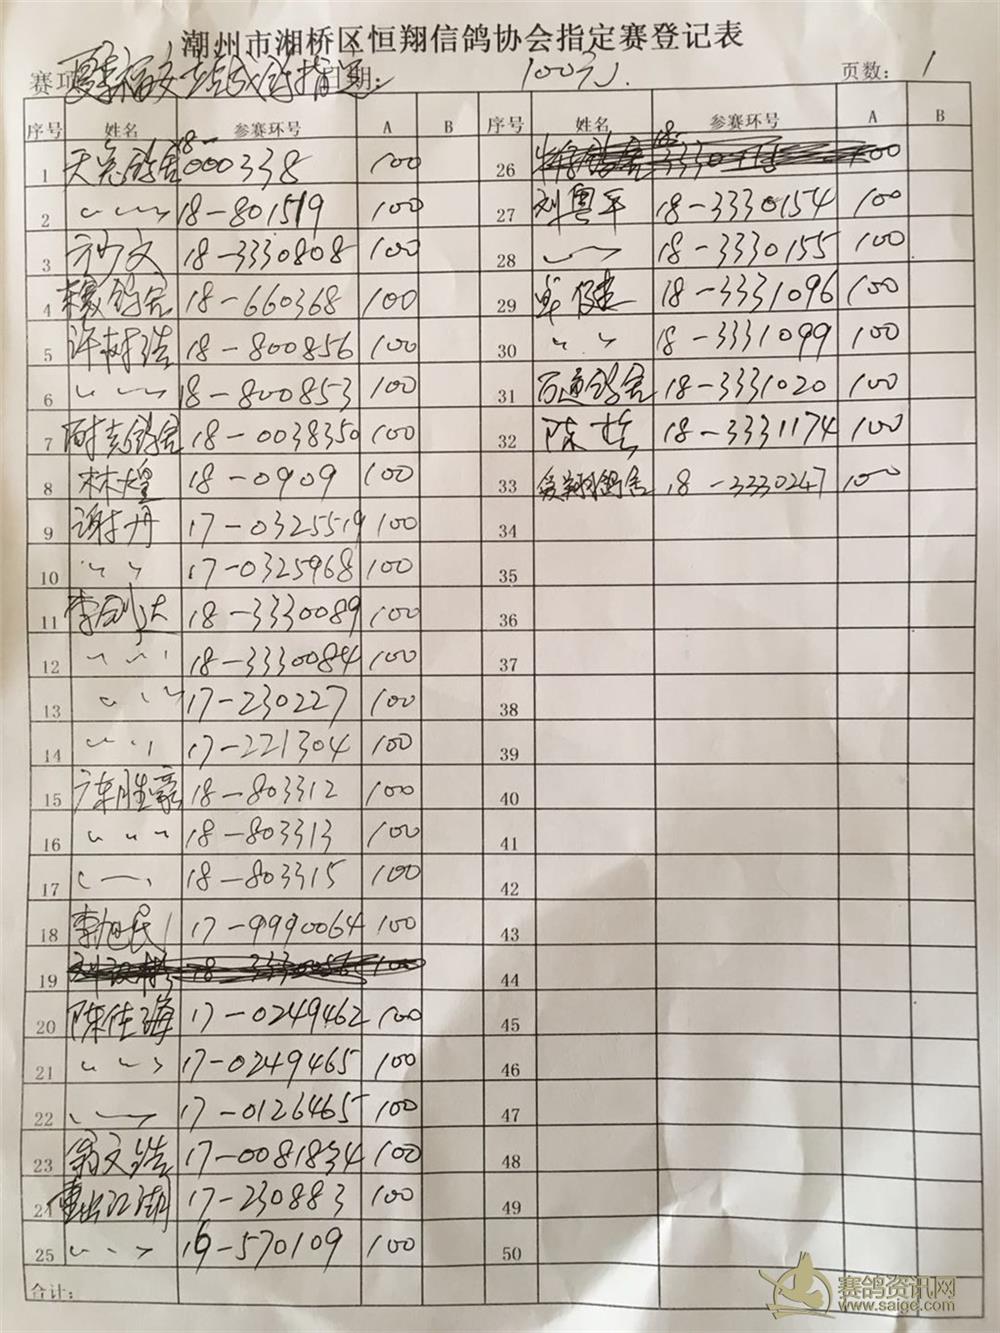 潮州市湘桥区恒翔信鸽协会指定赛登记表
赛项 日期: 100元. 页数: 1
序号 姓名 参赛环号 A B 序号 姓名 参赛环号 A B
1 鸽舍 18-000338 100 26 100
2 〃 18-801519 100 27 刘粤平 18-3330154 100
3 方少文 18-3330808 100 28 〃 18-3330155 100
4 鸽舍 18-660368 100 29 18-3331096 100
5 许树浩 18-800856 100 30 〃 18-3331099 100
6 〃 18-800853 100 31 百通鸽舍 18-3331020 100
7 鸽舍 18-0038350 100 32 陈 18-3331174 100
8 林煌 18-0909 100 33 翔鸽舍 18-3330247 100
9 谢丹 17-0325519 100 34
10 〃 17-0325968 100 35
11 李剑达 18-3330089 100 36
12 〃 18-3330084 100 37
13 〃 17-230227 100 38
14 〃 17-221304 100 39
15 陈胜豪 18-803312 100 40
16 〃 18-803313 100 41
17 〃 18-803315 100 42
18 李旭民 17-9990064 100 43
19 100 44
20 陈佳海 17-0249462 100 45
21 〃 17-0249465 100 46
22 〃 17-0126465 100 47
23 翁文浩 17-0081834 100 48
24 重出江湖 17-230883 100 49
25 〃 16-570109 100 50
合计:
赛鸽资讯网
www.saige.com